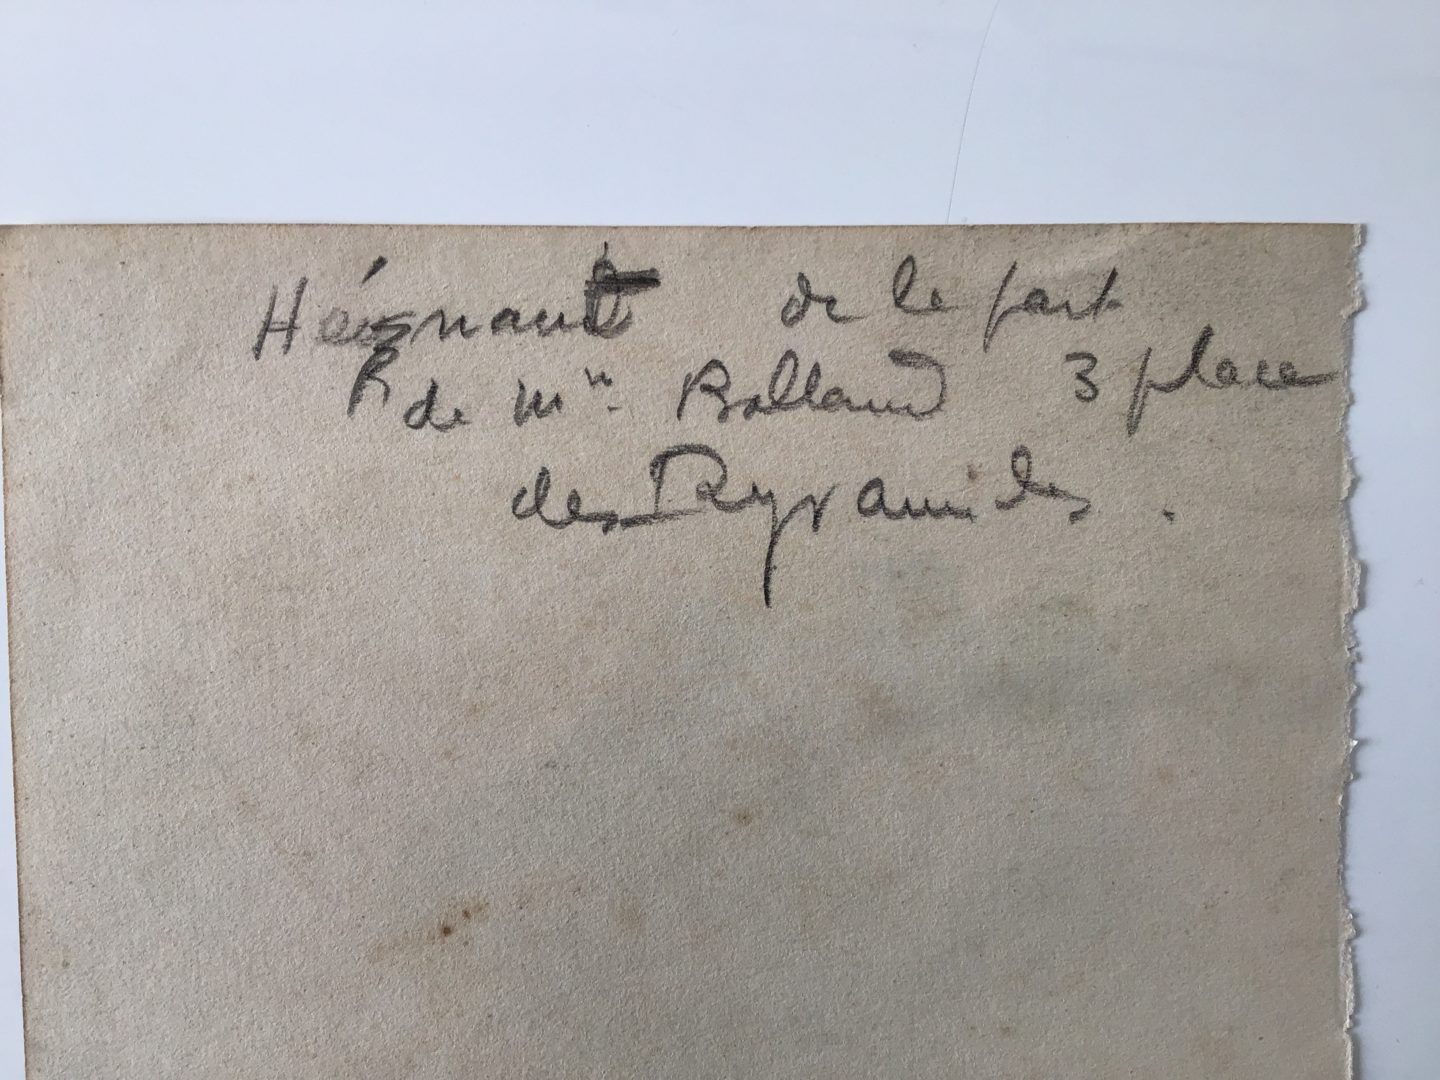 de la part
de Mr. Rolland 3 place
des Pyramides.